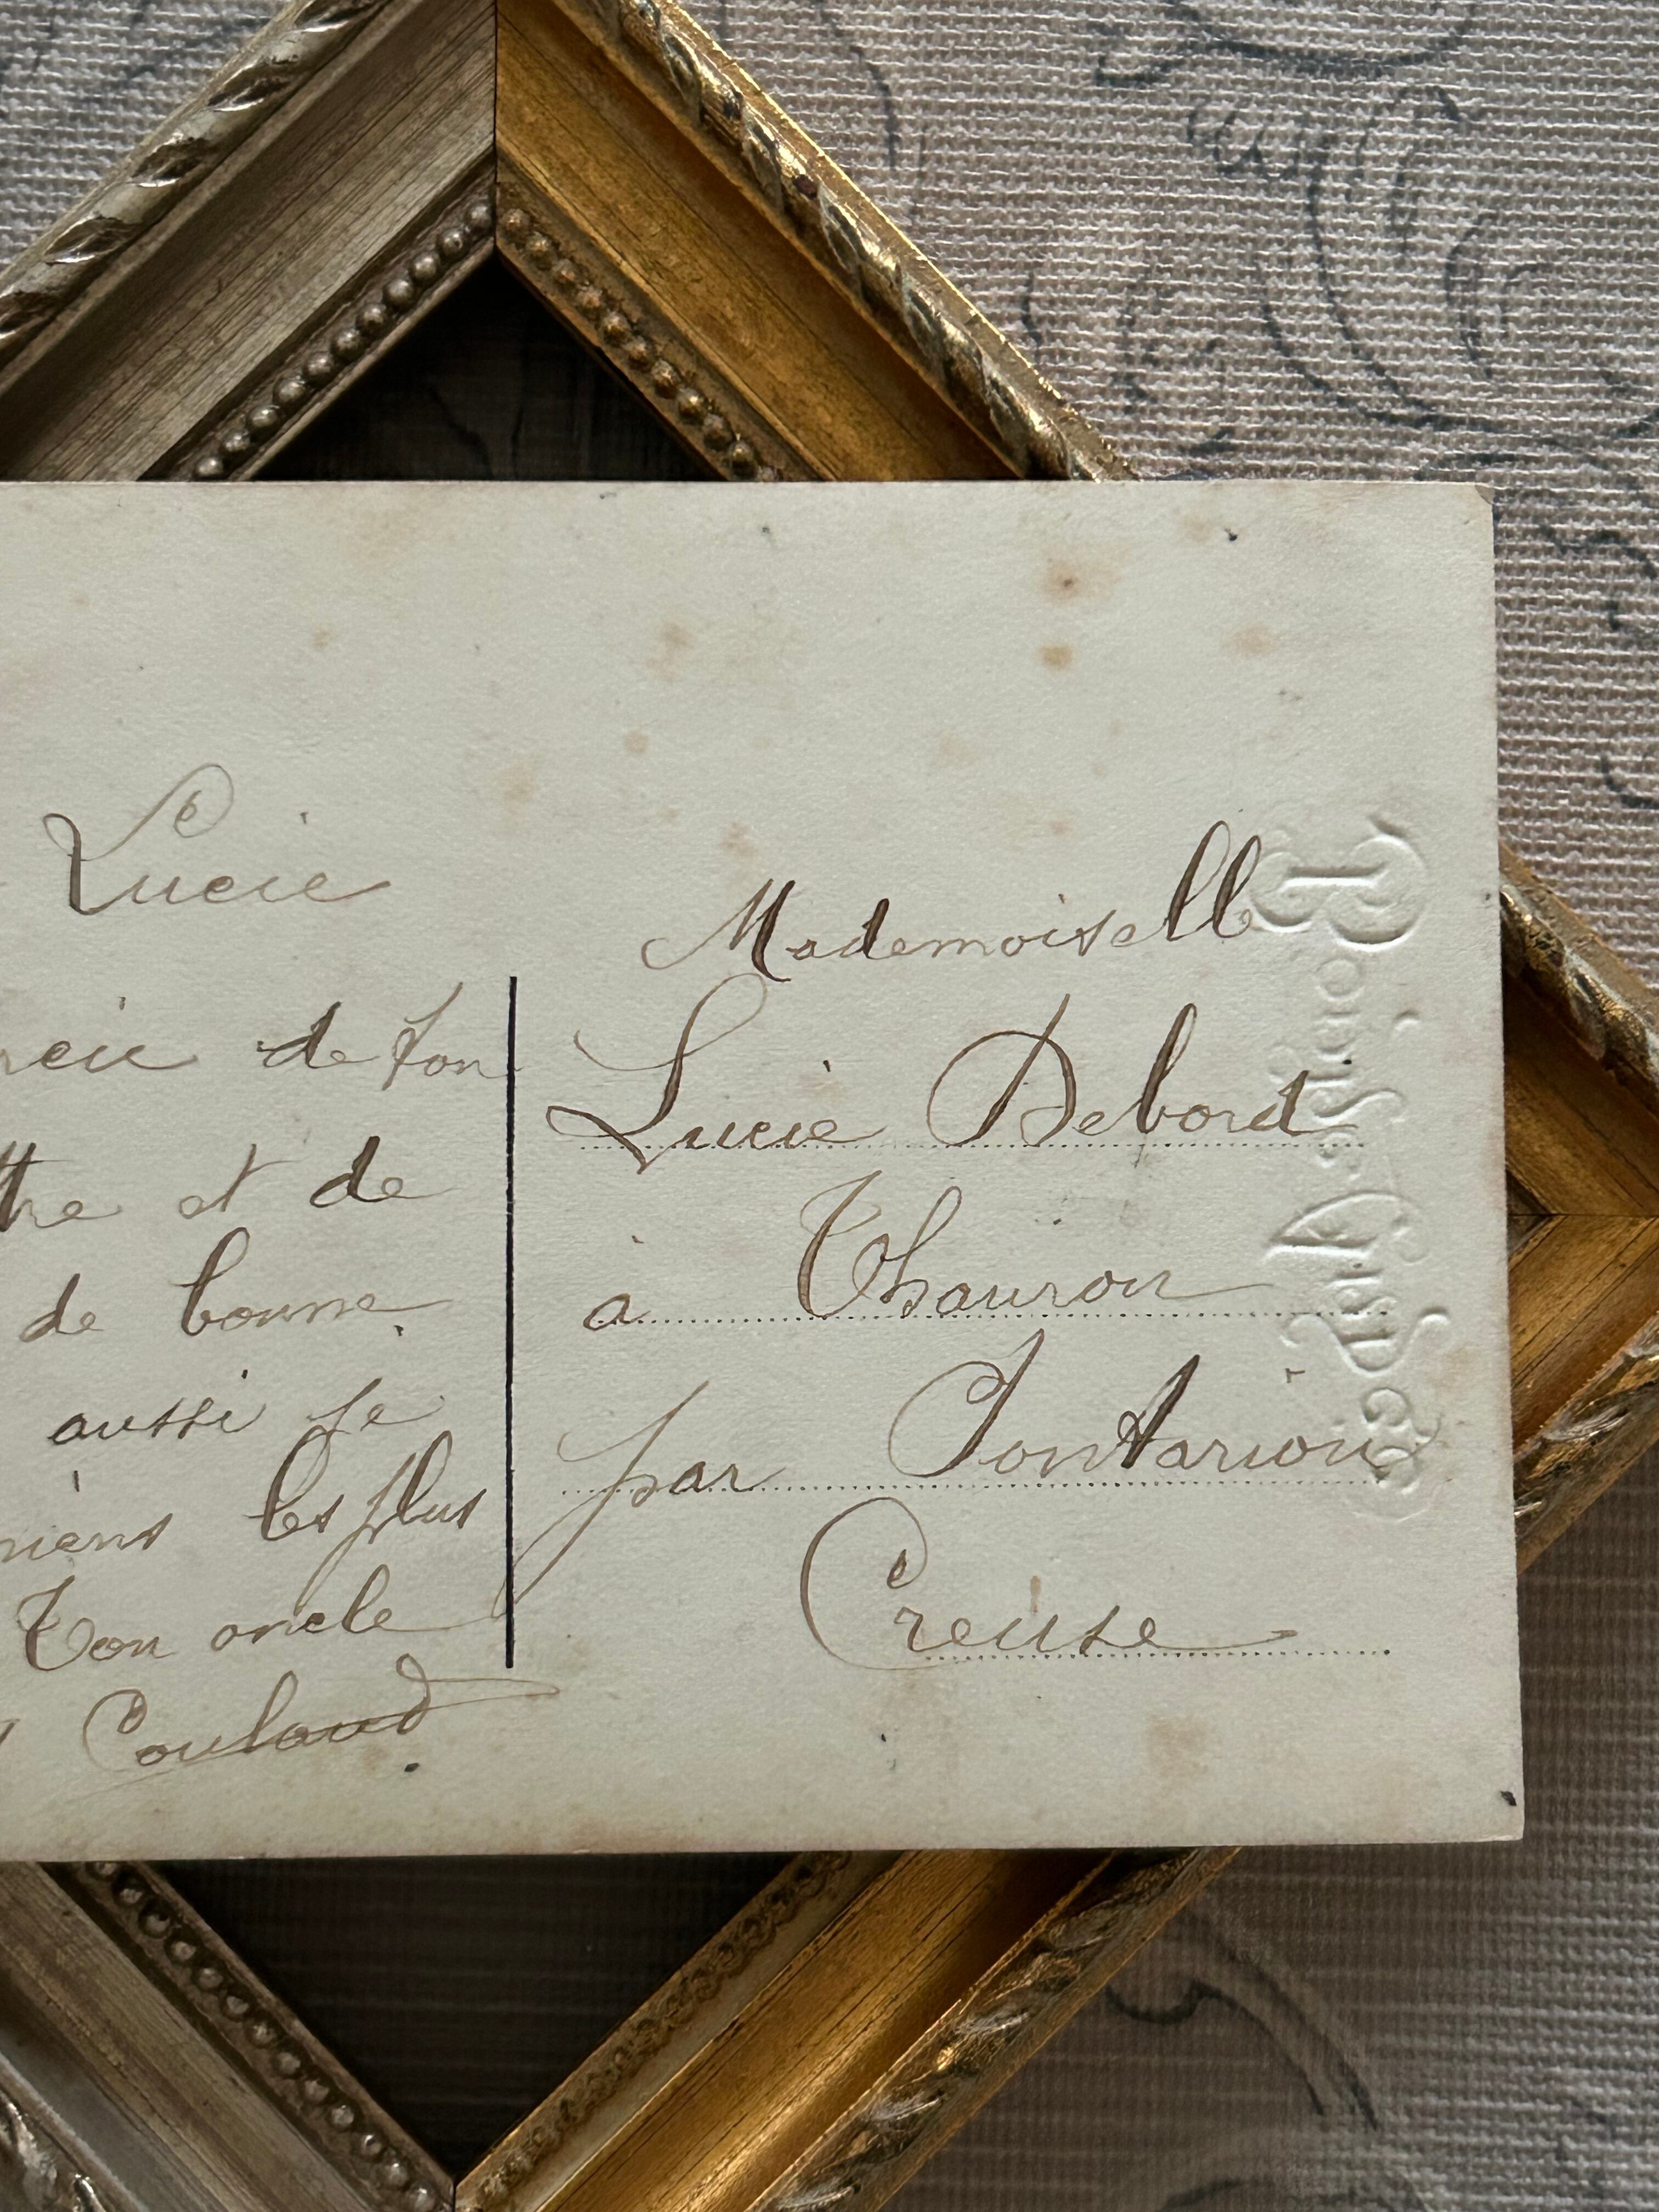 Lucie
de ton
et de
de bonne
aussi je
les plus
Ton oncle
Coulaud
Mademoiselle
Lucie Debord
à Thauron
par Pontarion
Creuse